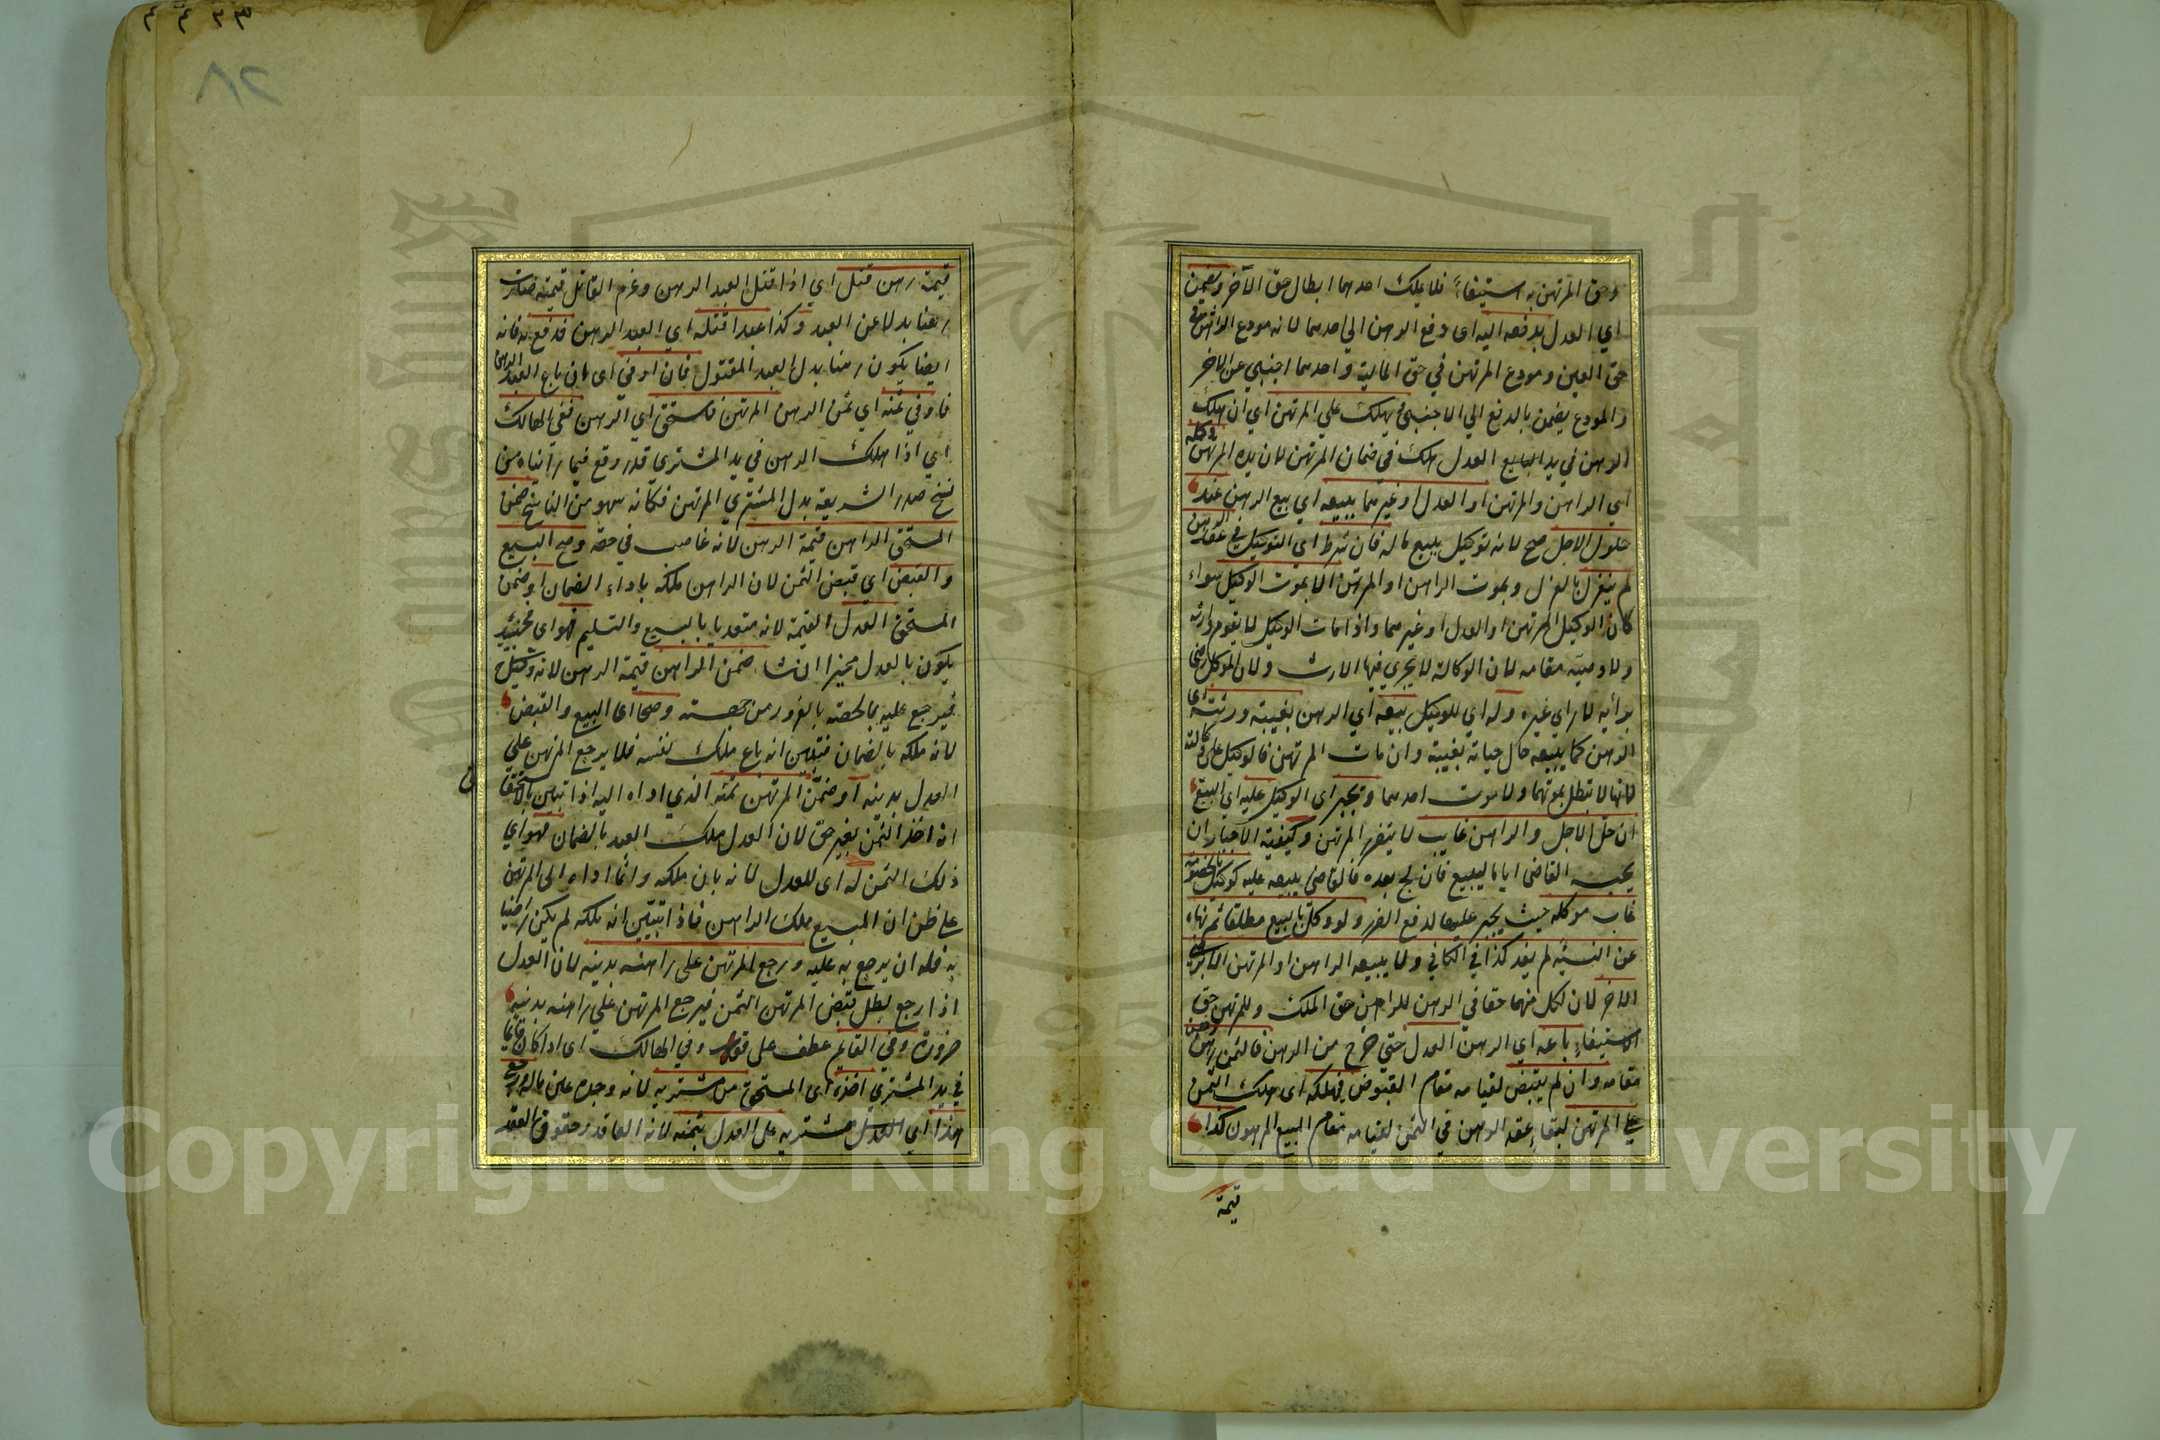 وحق المرتهن به استيفاءً فلا يملك احدهما ابطال حق الآخر ويضمن
اي العدل بدفعه اليه اى دفع الرهن الي احدهما لانه مودع الراهن في
حق العين ومودع المرتهن في حق المالية واحدهما اجنبي عن الاخر
والمودع يضمن بالدفع الي الاجنبي ويهلك علي المرتهن اي ان هلك
الرهن في يد العدل هلك في ضمان المرتهن لان يده المرتهن وكله
اي الراهن والمرتهن او العدل او غيرهما ببيعه اي بيع الرهن عند
حلول الاجل صح لانه توكيل ببيع ماله فان شرط اي التوكيل في عقد الرهن
لم ينعزل بالعزل وبموت الراهن او المرتهن الا بموت الوكيل سواء
كان الوكيل المرتهن او العدل او غيرهما واذا مات الوكيل لا يقوم وارثه
ولا وصيه مقامه لان الوكالة لا يجري فيها الارث ولان الموكل رضي
برأيه لا راي غيره وله اي للوكيل بيعه اي الرهن بغيبة ورثته اى
الرهن كما يبيعه حال حياته بغيبته وان مات المرتهن فالوكيل على وكالته
لانها لا تبطل بموتهما ولا بموت احدهما ويجبر اى الوكيل عليه اي البيع
ان حل الاجل والراهن غايب لا يتضرر المرتهن وكيفية الاجبار ان
يحبسه القاضى اياما ليبيع فان لج بعده فالقاضي يبيعه عليه كوكيل بالخصومة
غاب موكله حيث يجبر عليها لدفع الضرر ولو وكل بالبيع مطلقا ثم نهاه
عن النسيئه لم يفد كذا في الكافي ولا يبيعه الراهن او المرتهن الا برضى
الاخر لان لكل منهما حقا في الرهن للراهن حق الملك وللمرتهن حق
الاستيفاء باعه اي الرهن العدل حتي خرج من الرهن فالثمن رهن
مقامه وان لم يقبض لقيامه مقام المقبوض فهلكه اى هلك الثمن
علي المرتهن لبقاء عقد الرهن في الثمن لقيامه مقام المبيع المرهون كذا
قيمة
٢٨
قيمة رهن قتل اي اذا قتل العبد الرهن وغرم القاتل قيمته صارت
رهنا بدلا عن العبد وكذا عبد قتله اي العبد الرهن فدفع به فانه
ايضا يكون رهنا بدل العبد المقتول فان اوفي اى ان باع العدل الرهن
فاوفي ثمنه اي ثمن الرهن المرتهن فاستحق اي الرهن ففى الهالك
اي اذا هلك الرهن في يد المشتري قد وقع فيما رأيناه من
نسخ صدر الشريعة بدل المشتري المرتهن فكانه سهو من الناسخ ضمن
المستحق الراهن قيمة الرهن لانه غاصب في حقه وصح البيع
والقبض اي قبض الثمن لان الراهن ملكه باداء الضمان او ضمن
المستحق العدل القيمة لانه متعد بالبيع والتسليم فهو اى حينئذ
يكون بالعدل مخيرا ان شاء ضمن الراهن قيمة الرهن لانه وكيل
فيرجع عليه بما لحقه بالغرور من جهته وصحا اى البيع والقبض
لانه ملكه بالضمان فتبين انه باع ملك نفسه فلا يرجع المرتهن علي
العدل بدينه او ضمن المرتهن ثمنه الذي اداه اليه اذا تبين بالاستحقاق
انه اخذ الثمن بغير حق لان العدل ملك العبد بالضمان فهو اي
ذلك الثمن له اى للعدل لانه بان ملكه وانما اداه الى المرتهن
علي ظن ان المبيع ملك الراهن فاذا تبين انه ملكه لم يكن رضيا
به فله ان يرجع به عليه ورجع المرتهن على راهنه بدينه لان العدل
اذا رجع بطل قبض المرتهن الثمن فيرجع المرتهن علي راهنه بدينه
ضرورة وفي القايم عطف على قوله وفي الهالك اى اذا كان قايما
في يد المشتري اخذه اى المستحق من مشتريه لانه وجد عين ماله ورجع
هذا اي مشتريه على العدل بثمنه لانه العاقد وحقوق العقد
Copyright © King Saud University